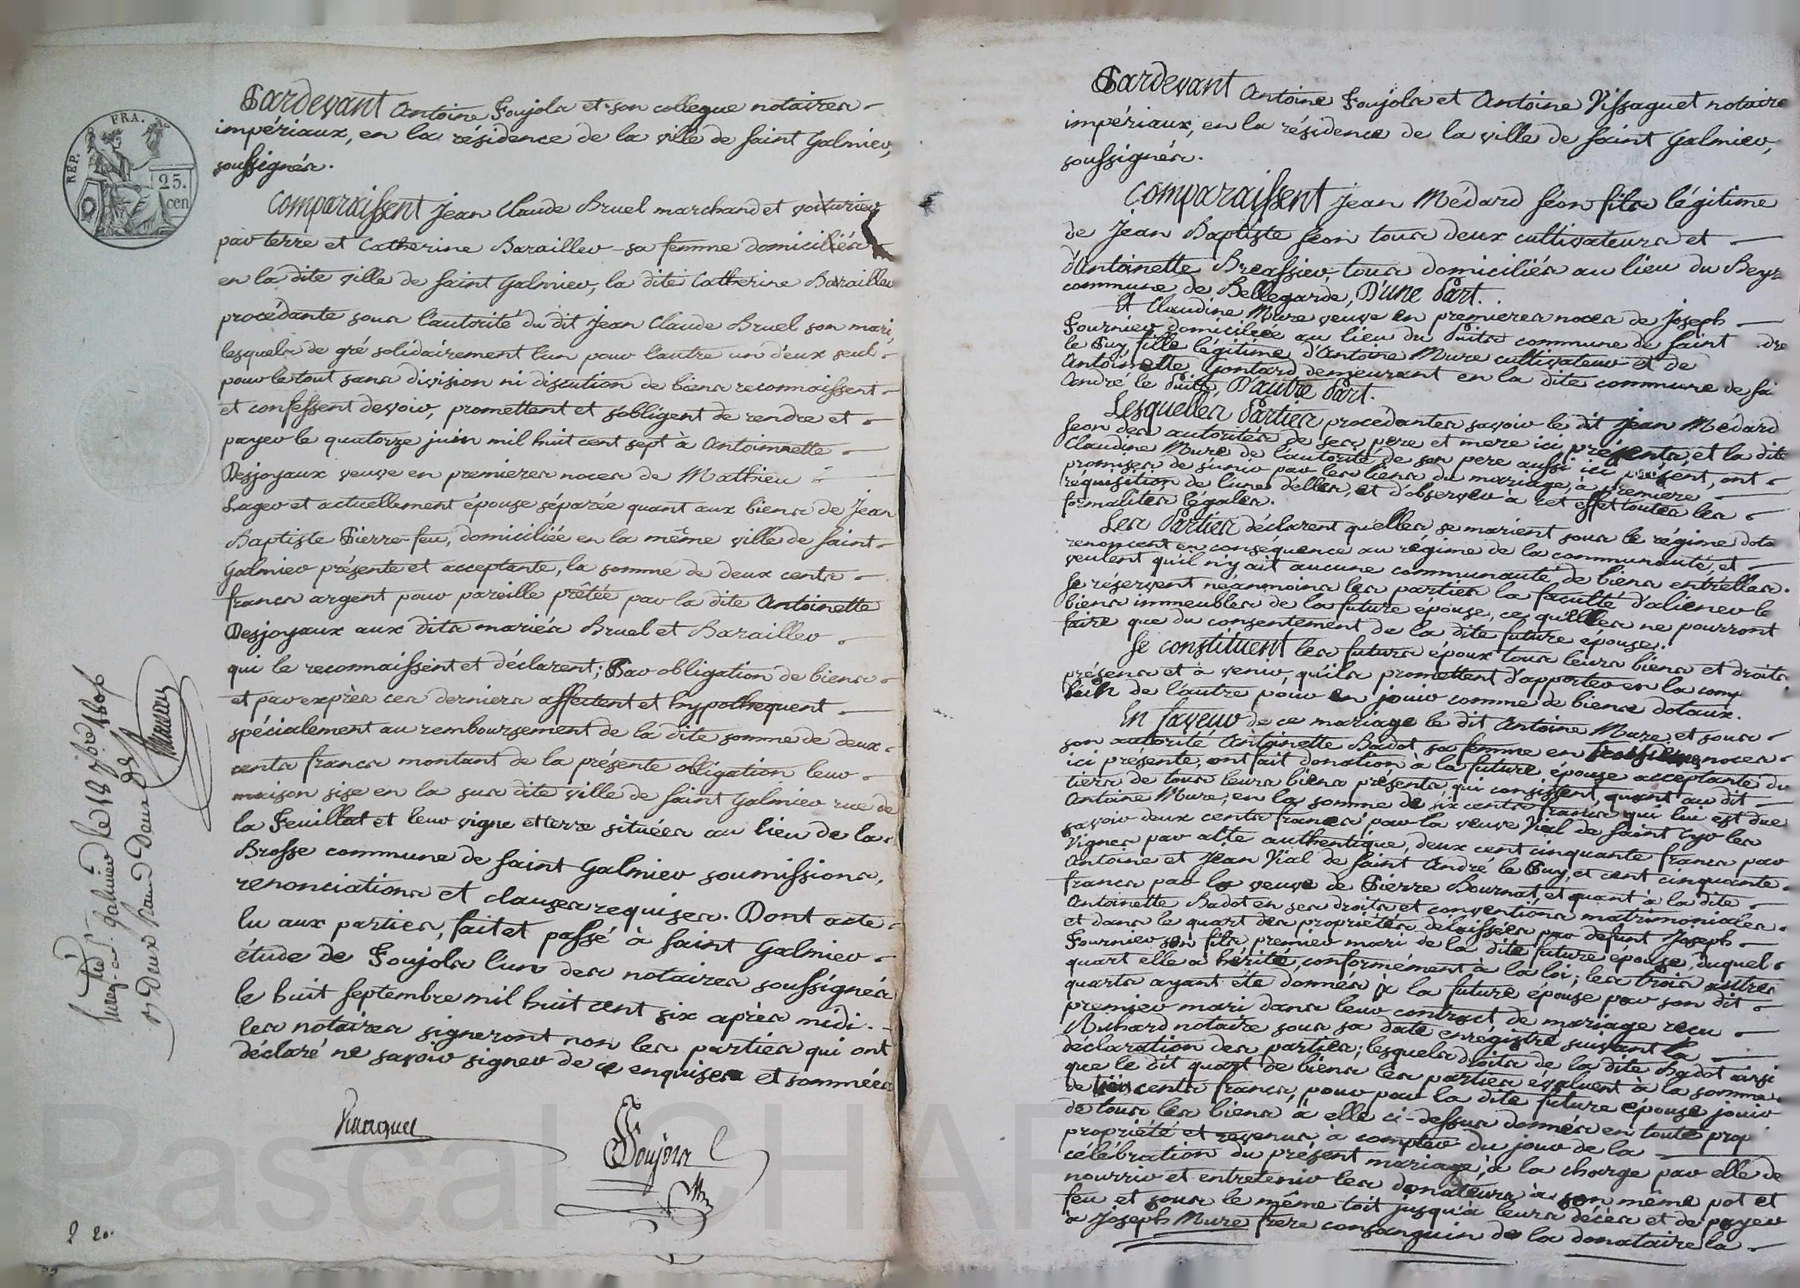 REP. FRA.
25.
cen
Pardevant Antoine Poujols et son collegue notaires
impériaux, en la résidence de la ville de Saint Galmier,
soussignés.
Comparaissent Jean Claude Bruel marchand et voiturier
par terre et Catherine Barailler sa femme domiciliés
en la dite ville de Saint Galmier, la dite Catherine Barailler
procédante sous l'autorité du dit Jean Claude Bruel son mari,
lesquels de gré solidairement l'un pour l'autre un d'eux seul
pour le tout sans division ni discution de biens reconnoissent
et confessent devoir, promettent et s'obligent de rendre et
payer le quatorze juin mil huit cent sept à Antoinette
Desjoyaux veuve en premieres noces de Mathieu
Lager et actuellement épouse séparée quant aux biens de Jean
Baptiste Pierre-feu, domiciliée en la même ville de Saint
Galmier présente et acceptante, la somme de deux cents
francs argent pour pareille prêtée par la dite Antoinette
Desjoyaux aux dits mariés Bruel et Barailler
qui le reconnaissent et déclarent; Par obligation de biens
et par exprès ces derniers affectent et hypothequent
spécialement au remboursement de la dite somme de deux
cents francs montant de la présente obligation leur
maison sise en la sus dite ville de Saint Galmier rue de
la Feuillat et leur vigne et terre situées au lieu de la
Brosse commune de Saint Galmier soumissions,
renonciations et clauses requises. Dont acte
lu aux parties, fait et passé à Saint Galmier
étude de Poujols l'un des notaires soussignés
le huit septembre mil huit cent six après midi.
les notaires signeront non les parties qui ont
déclaré ne savoir signer de ce enquises et sommées
Poujols
Pardevant Antoine Poujols et Antoine Vissaguet notaire
impériaux, en la résidence de la ville de Saint Galmier,
soussignés.
Comparaissent Jean Médard Séon fils légitime
de Jean Baptiste Séon tous deux cultivateurs et
d'Antoinette Bressieu tous domiciliés au lieu du
commune de Bellegarde, D'une Part.
Et Claudine Mure veuve en premieres noces de Joseph
Fournier domiciliée au lieu du Puits commune de Saint dré
le Puy fille légitime d'Antoine Mure cultivateur et de
Antoinette Gontard demeurant en la dite commune de
André le Puits, D'autre Part.
Lesquelles Parties procédantes savoir le dit Jean Médard
Séon des autorités de ses pere et mere ici présents, et la dite
Claudine Mure de l'autorité de son pere aussi ici présent, ont
promises de s'unir par les liens du mariage à premiere
requisition de l'une d'elles, et d'observer à cet effet toutes les
formalités légales.
Les Parties déclarent qu'elles se marient sous le régime dota
renoncent en conséquence au régime de la communauté, et
veulent qu'il n'y ait aucune communauté de biens entr'elles.
Se réservent néanmoins les parties la faculté d'aliéner le
biens immeubles de la future épouse, ce qu'elles ne pourront
faire que du consentement de la dite future épouse.
Se constituent les futurs époux tous leurs biens et droits
présens et à venir, qu'ils promettent d'apporter en la comp
de l'autre pour en jouir comme de biens dotaux.
En faveur de ce mariage le dit Antoine Mure, et sous
son autorité Antoinette Badot sa femme en noces
ici présente, ont fait donation à la future épouse acceptante du
tiers de tous leurs biens présents qui consistent, quant au dit
Antoine Mure, en la somme de six cents francs qui lui est due
savoir deux cents francs par la veuve Vial de Saint Cyr les
Vignes par acte authentique, deux cent cinquante francs par
Antoine et Jean Vial de Saint André le Puy, et cent cinquante
francs par la veuve de Pierre Bournat, et quant à la dite
Antoinette Badot en ses droits et conventions matrimoniales
et dans le quart des propriétés délaissées par défunt Joseph
Fournier son fils premier mari de la dite future épouse, duquel
quart elle a hérité conformément à la loi; les trois autres
quarts ayant été donnés à la future épouse par son dit
premier mari dans leur contrat de mariage reçu
notaire sous sa date enrégistré suivant la
déclaration des parties; lesquels droits de la dite Badot ainsi
que le dit quart de biens les parties évaluent à la somme
de cents francs, pour par la dite future épouse jouir
de tous les biens à elle ci-dessus donnés en toute prop
propriété et revenus à compter du jour de la
célébration du présent mariage, à la charge par elle de
nourrir et entretenir les donateurs à son même pot et
feu et sous le même toit jusqu'à leurs décès et de payer
à Joseph Mure frere consanguin de la donataire la
Pascal CHAP